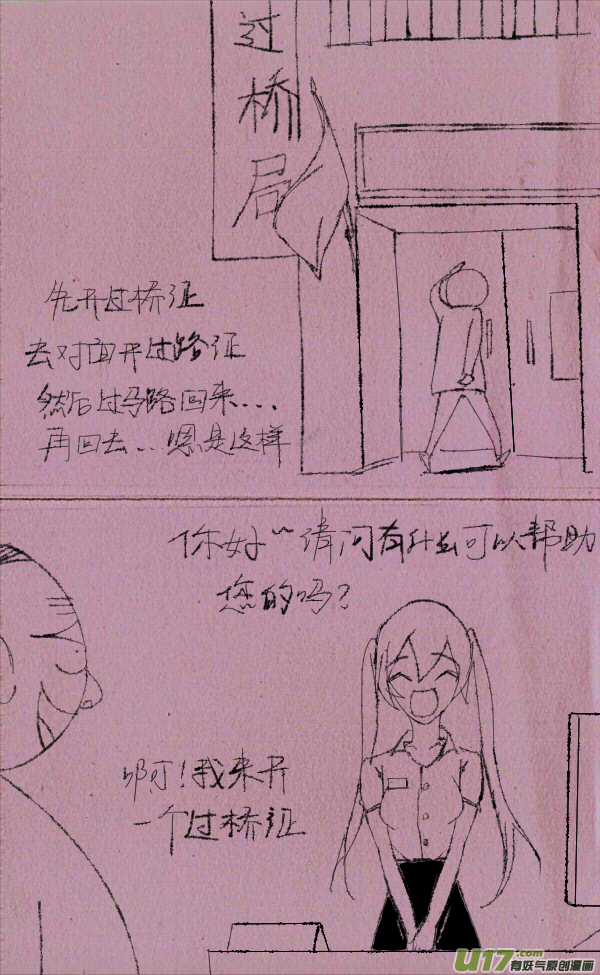 过桥局
先开过桥证
去对面开过路证
然后过马路回来...
再回去...嗯是这样
你好~请问有什么可以帮助
您的吗？
啊！我来开
一个过桥证
U17.com
有妖气原创漫画